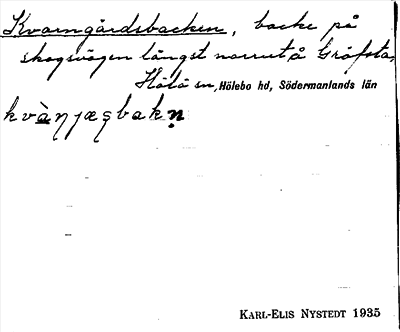 Kvarngårdsbacken, backe på
skogsvägen längst norrut å Gräfsta,
Hölö sn, Hölebo hd, Södermanlands län
KARL-ELIS NYSTEDT 1935